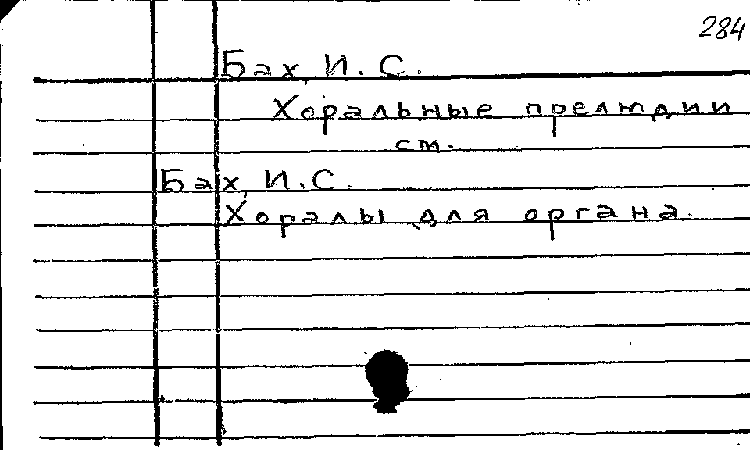 284
Бах, И. С.
Хоральные прелюдии
см.
Бах, И. С.
Хоралы для органа.